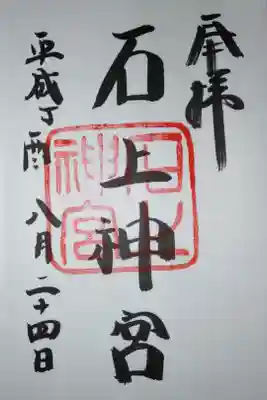 奉拝
石上神宮
石上神宮
平成丁酉 八月二十四日